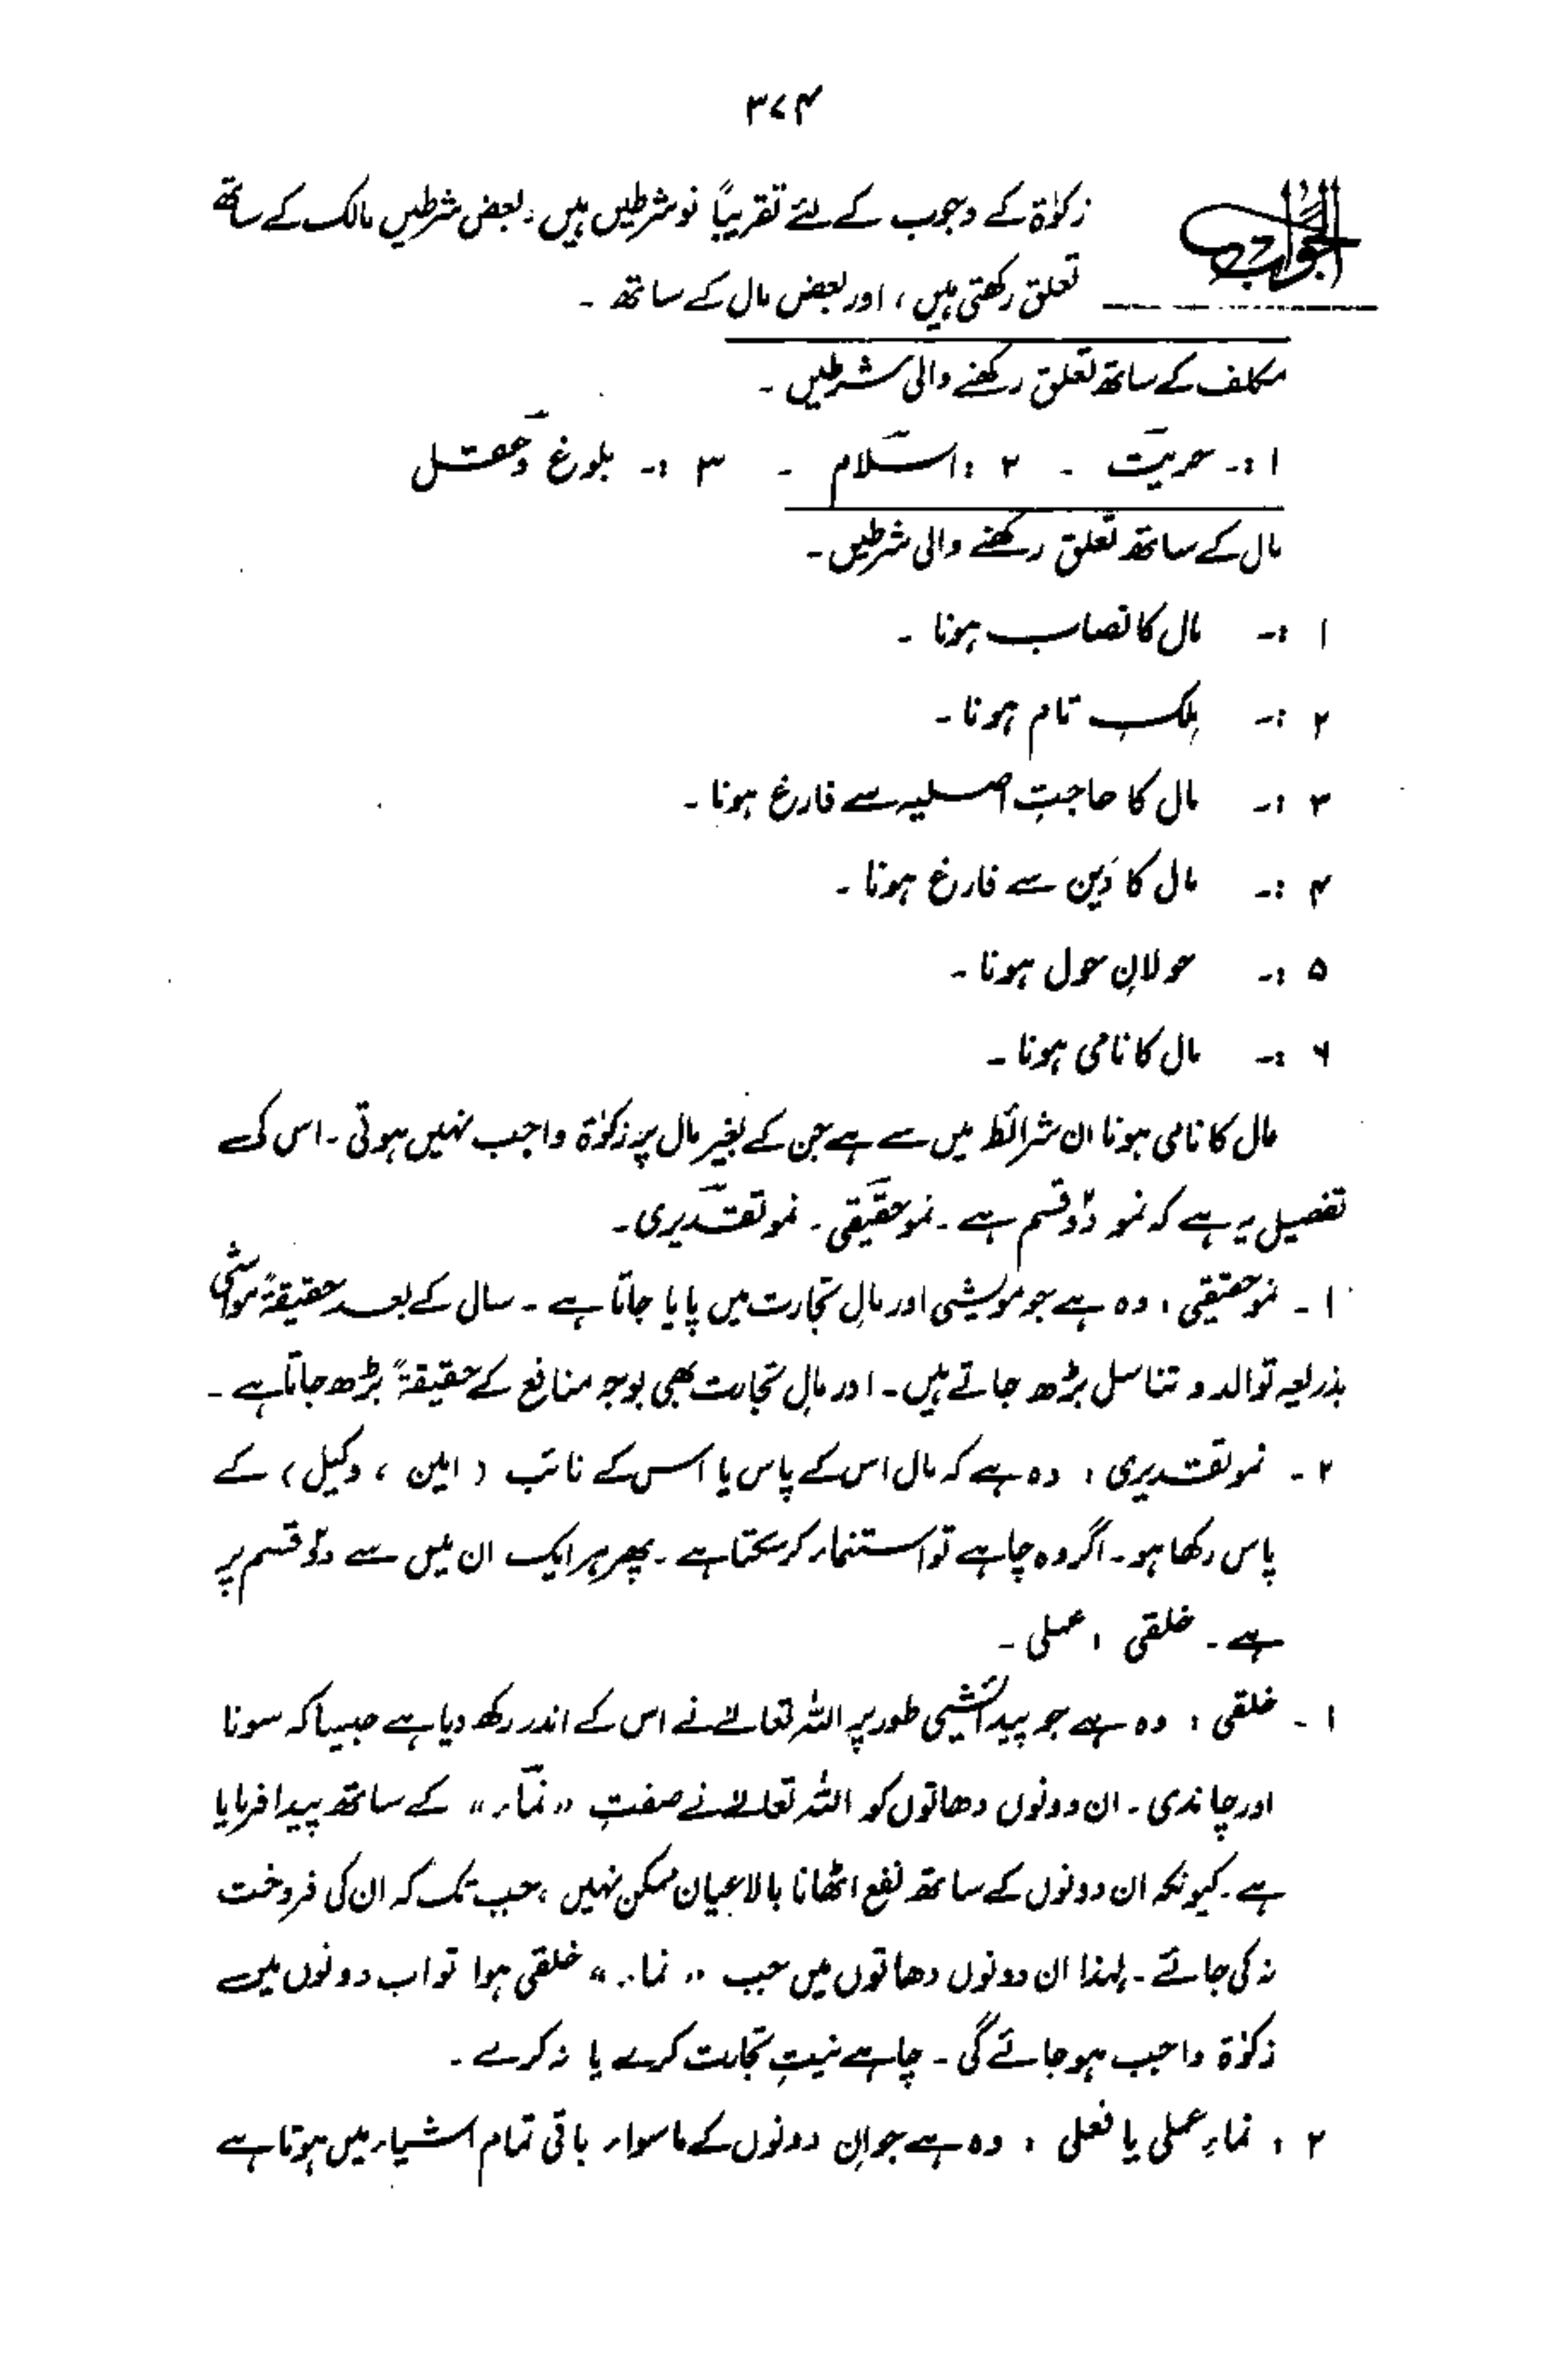 ۳۷۴
الجواب
زکوٰۃ کے وجوب کے لئے تقریباً نو شرطیں ہیں، بعض شرطیں مالک کے ساتھ
تعلق رکھتی ہیں، اور بعض مال کے ساتھ ۔
مکلف کے ساتھ تعلق رکھنے والی شرطیں ۔
۱ :۔ حریت ۔ ۲ : اسلام ۔ ۳ :۔ بلوغ و عقل
مال کے ساتھ تعلق رکھنے والی شرطیں ۔
۱ :۔ مال کا نصاب ہونا ۔
۲ :۔ مِلکِ تام ہونا ۔
۳ :۔ مال کا حاجتِ اصلیہ سے فارغ ہونا ۔
۴ :۔ مال کا دَین سے فارغ ہونا ۔
۵ :۔ حولانِ حول ہونا ۔
۶ :۔ مال کا نامی ہونا ۔
مال کا نامی ہونا ان شرائط میں سے ہے جن کے بغیر مال پر زکوٰۃ واجب نہیں ہوتی ۔ اس کی
تفصیل یہ ہے کہ نمو دو قسم ہے ۔ نمو حقیقی ۔ نمو تقدیری ۔
۱ ۔ نمو حقیقی : وہ ہے جو مویشی اور مالِ تجارت میں پایا جاتا ہے ۔ سال کے بعد حقیقۃً مواشی
بذریعہ توالد و تناسل بڑھ جاتے ہیں ۔ اور مالِ تجارت بھی بوجہ منافع کے حقیقۃً بڑھ جاتا ہے ۔
۲ ۔ نمو تقدیری : وہ ہے کہ مال اس کے پاس یا اس کے نائب (امین ، وکیل) کے
پاس رکھا ہو ۔ اگر وہ چاہے تو استنماء کر سکتا ہے ۔ پھر ہر ایک ان میں سے دو قسم پر
ہے ۔ خلقی ، عملی ۔
۱ ۔ خلقی : وہ ہے جو پیدائشی طور پر اللہ تعالےٰ نے اس کے اندر رکھ دیا ہے جیسا کہ سونا
اور چاندی ۔ ان دونوں دھاتوں کو اللہ تعالےٰ نے صفتِ "نماء" کے ساتھ پیدا فرمایا
ہے ۔ کیونکہ ان دونوں کے ساتھ نفع اٹھانا بالاعیان ممکن نہیں ، جب تک کہ ان کی فروخت
نہ کی جائے ۔ لہذا ان دونوں دھاتوں میں جب "نماء" خلقی ہوا تو اب دونوں میں
زکوٰۃ واجب ہو جائے گی ۔ چاہے نیتِ تجارت کرے یا نہ کرے ۔
۲ : نماءِ عملی یا فعلی : وہ ہے جو اِن دونوں کے ماسواء باقی تمام اشیاء میں ہوتا ہے